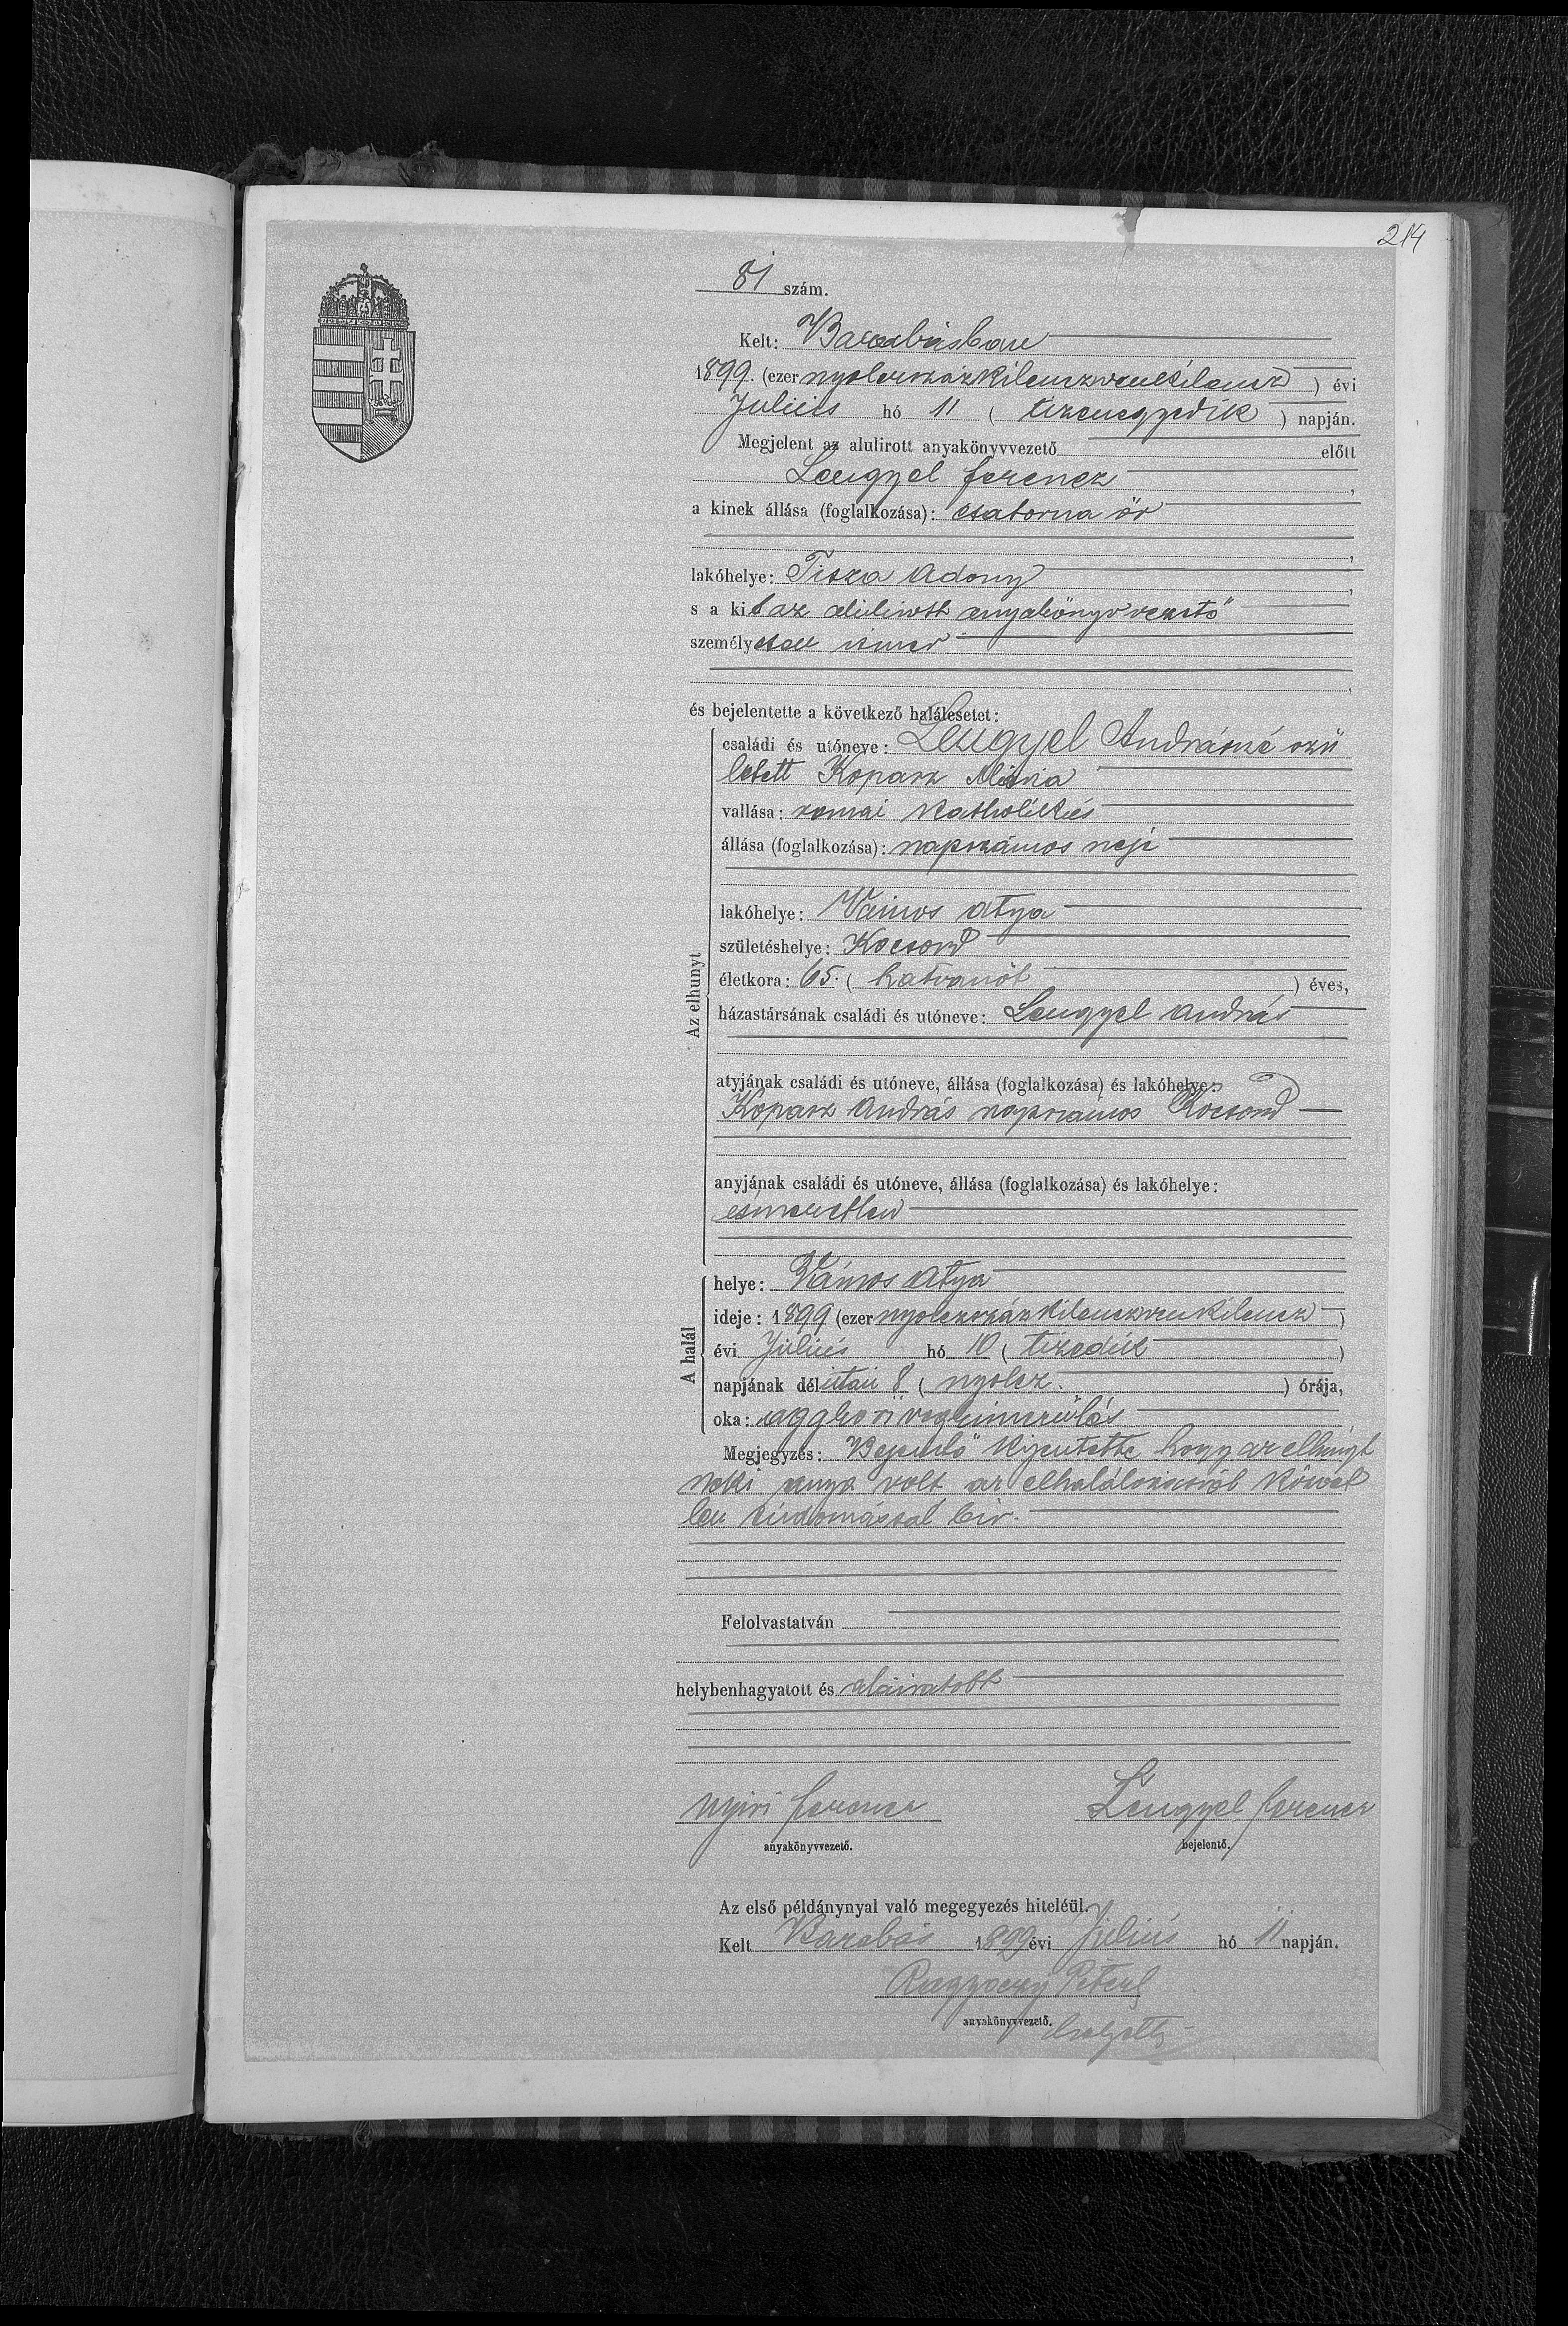 214
81 szám.
Kelt: Barabásban
1899. (ezer nyolczszázkilenczvenkilencz) évi
Julius hó 11 (tizenegyedik) napján.
Megjelent az alulirott anyakönyvvezető előtt
Lengyel Ferencz,
a kinek állása (foglalkozása): csatorna őr
,
lakóhelye: Tisza Adony,
s a kit az alulirott anyakönyvvezető
személyesen ismer
,
és bejelentette a következő halálesetet:
Az elhunyt
családi és utóneve: Lengyel Andrásné szü
letett Kopasz Mária
vallása: romai katholikus
állása (foglalkozása): napszámos neje
lakóhelye: Vámos Atya
születéshelye: Kocsord
életkora: 65. (hatvanöt) éves,
házastársának családi és utóneve: Lengyel András
atyjának családi és utóneve, állása (foglalkozása) és lakóhelye:
Kopasz András napszámos Kocsord
anyjának családi és utóneve, állása (foglalkozása) és lakóhelye:
esmeretlen
A halál
helye: Vámos Atya
ideje: 1899 (ezer nyolczszázkilenczvenkilencz)
évi Július hó 10 (tizedik)
napjának délutáni 8 (nyolcz.) órája,
oka: aggkori végkimerülés
Megjegyzés: Bejentő kijentette hogy az elhunyt
neki anya volt, az elhalálozásról közvet
len tudomással bir.
Felolvastatván
helybenhagyatott és aláiratott
Nyiri Ferencz Lengyel Ferencz
anyakönyvvezető. bejelentő.
Az első példánynyal való megegyezés hiteléül.
Kelt Barabás 1899 évi Július hó 11 napján.
Péter
anyakönyvvezető.